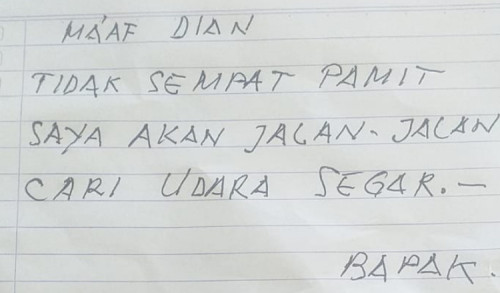 MA'AF DIAN
TIDAK SEMPAT PAMIT
SAYA AKAN JALAN-JALAN
CARI UDARA SEGAR.-
BAPAK.